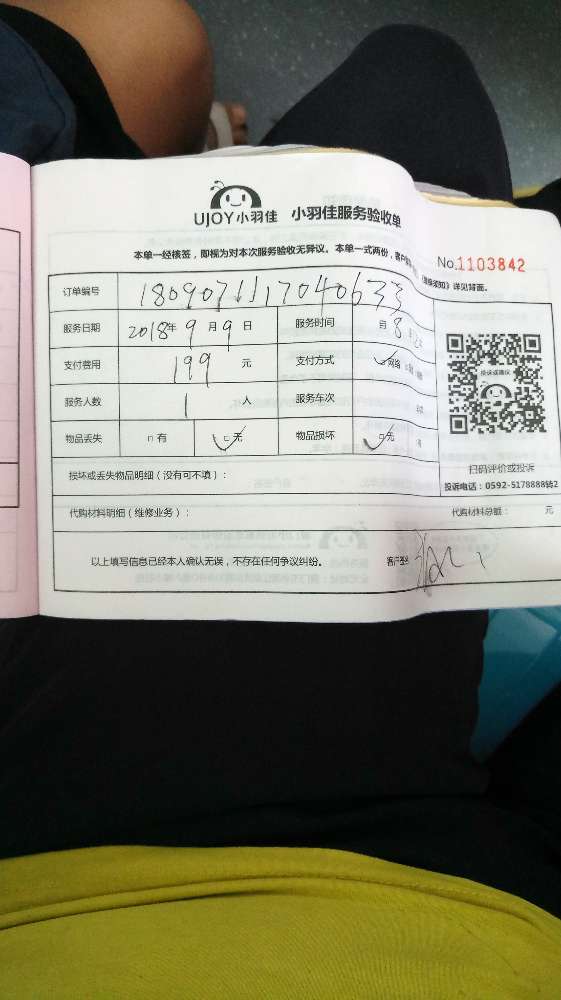 UJOY小羽佳 小羽佳服务验收单
本单一经核签，即视为对本次服务验收无异议。本单一式两份，客户
须知》详见背面。
No.1103842
订单编号
服务日期 2018年 9 月 9 日 服务时间 8
支付费用 199 元 支付方式 网络
服务人数 1 人 服务车次
物品丢失 有 无 物品损坏 无
投诉或建议
扫码评价或投诉
投诉电话：0592-5178888转2
损坏或丢失物品明细（没有可不填）：
代购材料明细（维修业务）： 代购材料总额： 元
以上填写信息已经本人确认无误，不存在任何争议纠纷。 客户签名